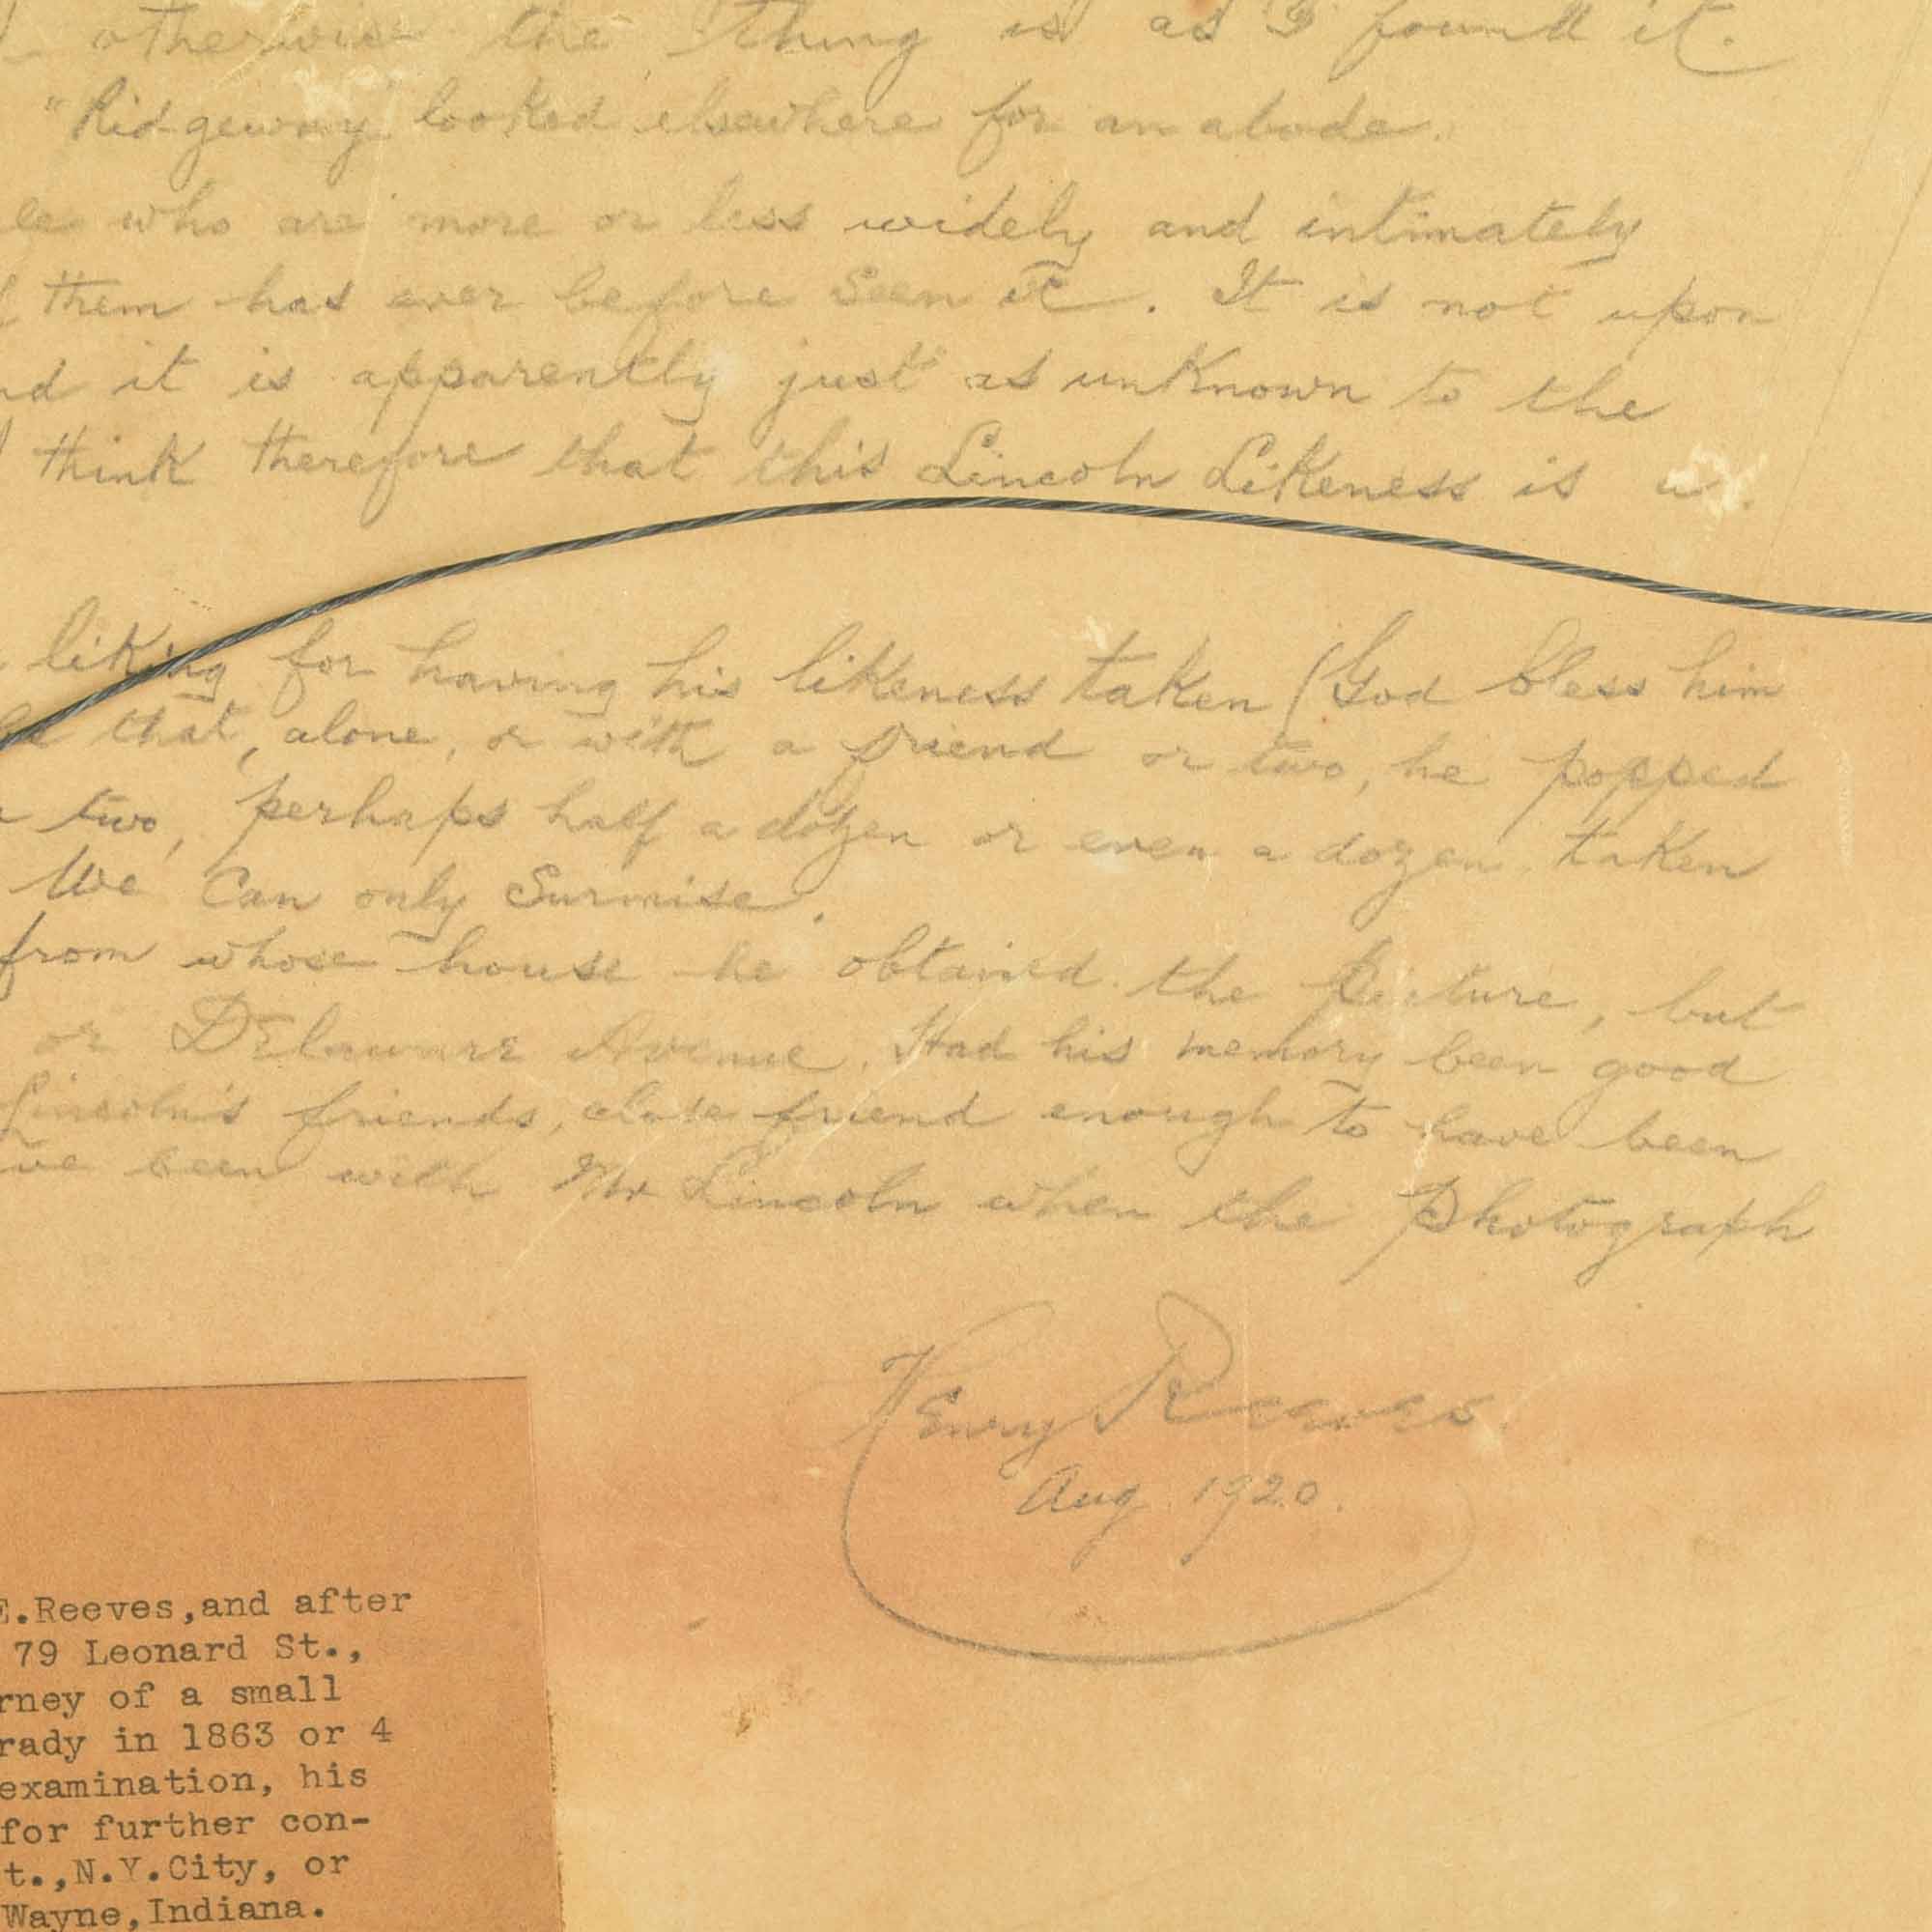 otherwise the thing is as I found it.
"Ridgeway" looked elsewhere for an abode.
le who are more or less widely and intimately
them has ever before seen it. It is not upon
nd it is apparently just as unknown to the
think therefore that this Lincoln Likeness is
liking for having his likeness taken (God bless him
that, alone, or with a friend or two, he popped
two, perhaps half a dozen or even a dozen taken
We Can only Surmise.
from whose house he obtained the picture, but
or Delaware Avenue. Had his memory been good
Lincoln's friends, close friend enough to have been
ve been with Mr Lincoln when the Photograph
Henry Reeves.
Aug. 1920.
E.Reeves,and after
79 Leonard St.,
rney of a small
rady in 1863 or 4
examination, his
for further con-
t.,N.Y.City, or
Wayne,Indiana.